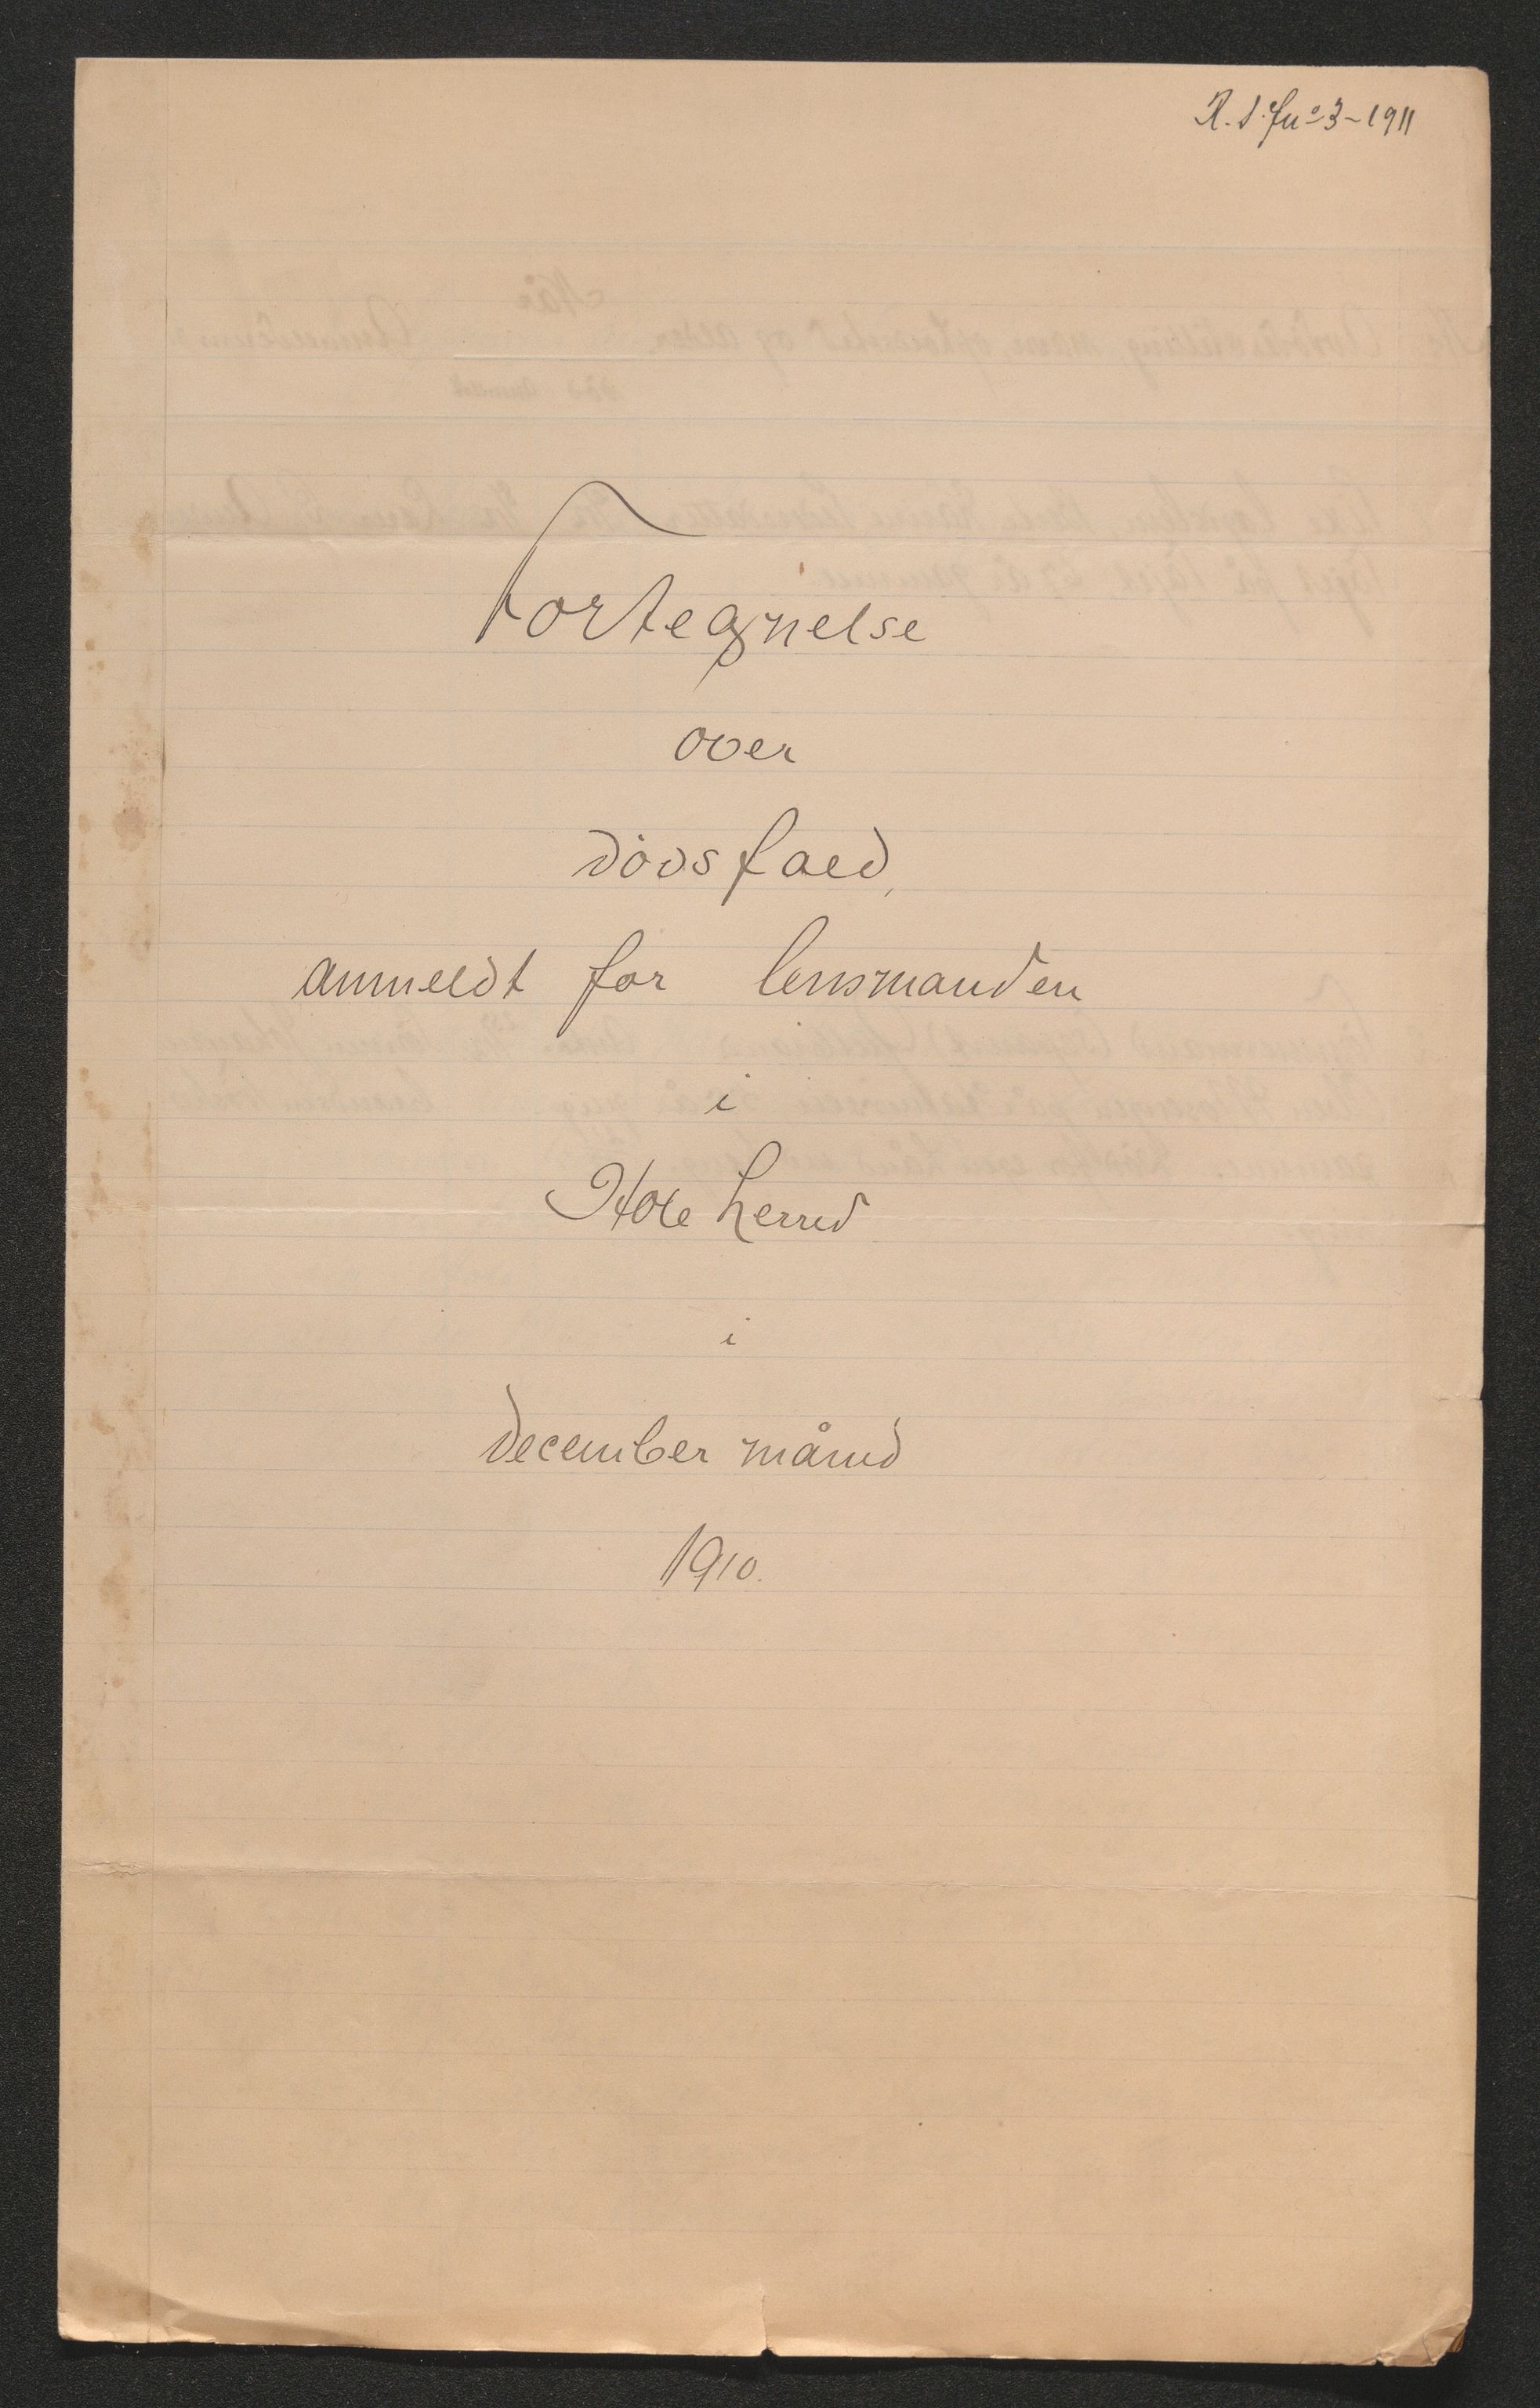 R. S. Jn° 3 - 1911
Fortegnelse
over
dödsfald,
anmeldt for lensmanden
i
Hole herred
i
december måned
1910.